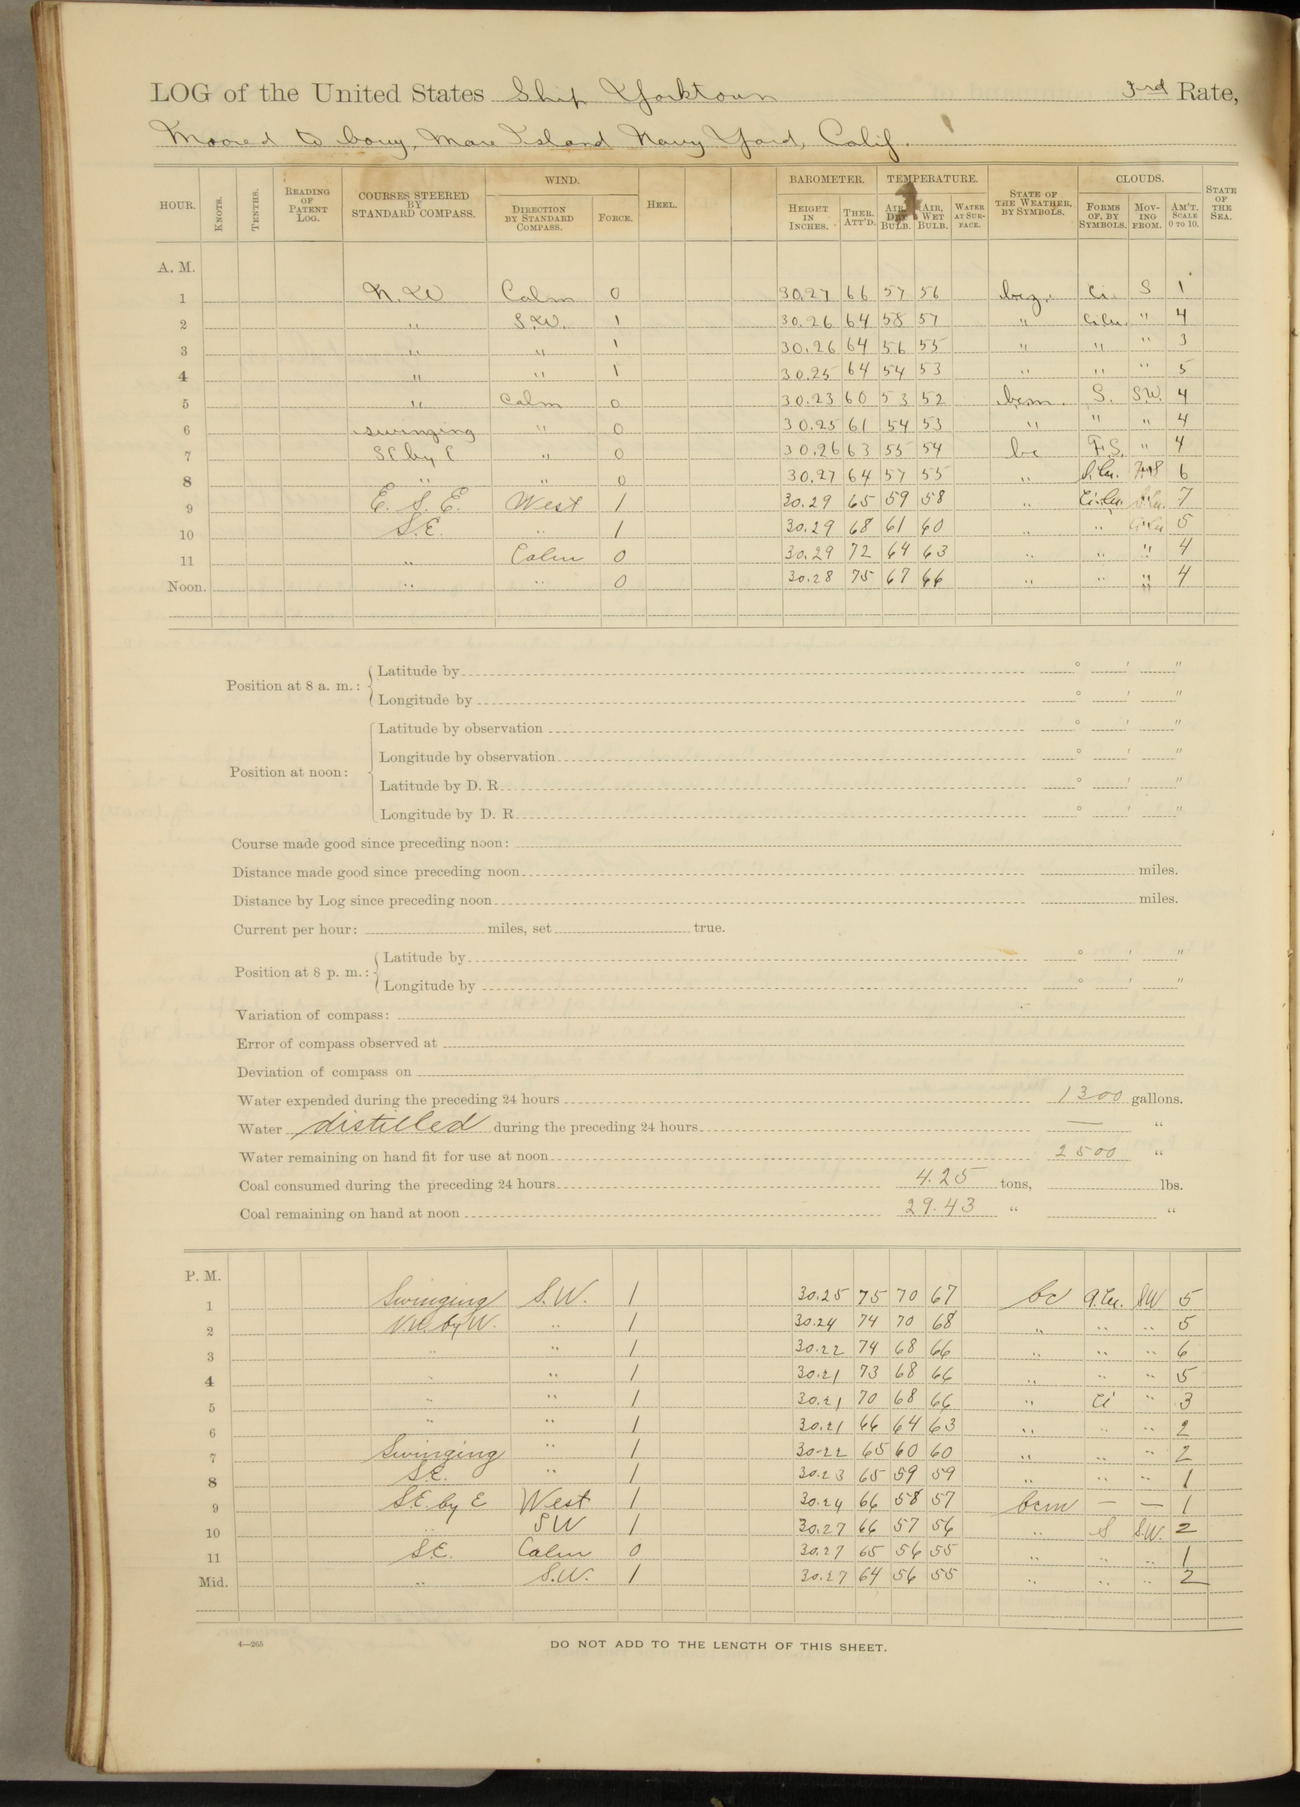 LOG of the United States Ship Yorktown 3rd Rate,
Moored to bouy, Mare Island Navy Yard, Calif.
HOUR. KNOTS. TENTHS. READING OF PATENT LOG. COURSES STEERED BY STANDARD COMPASS. WIND. DIRECTION BY STANDARD COMPASS. FORCE. HEEL. BAROMETER. HEIGHT IN INCHES. THER. ATT'D. TEMPERATURE. AIR, DRY BULB. AIR, WET BULB. WATER AT SURFACE. STATE OF THE WEATHER, BY SYMBOLS. CLOUDS. FORMS OF, BY SYMBOLS. MOVING FROM. AM'T. SCALE 0 TO 10. STATE OF THE SEA.
A. M.
1 N. W Calm 0 30.27 66 57 56 bcz. Ci. S 1
2 " S.W. 1 30.26 64 58 57 " Ci.Cu. " 4
3 " " 1 30.26 64 56 55 " " " 3
4 " " 1 30.25 64 54 53 " " " 5
5 " Calm 0 30.23 60 53 52 bcm. S. S.W. 4
6 swinging " 0 30.25 61 54 53 " " " 4
7 SE by E " 0 30.26 63 55 54 bc F.S. " 4
8 " " 0 30.27 64 57 55 " S.Cu. 6
9 E. S. E. West 1 30.29 65 59 58 " Ci.Cu. 7
10 S.E. " 1 30.29 68 61 60 " " 5
11 " Calm 0 30.29 72 64 63 " " " 4
Noon. " " 0 30.28 75 67 66 " " " 4
Position at 8 a. m.: Latitude by ° ′ ″
Longitude by ° ′ ″
Position at noon: Latitude by observation ° ′ ″
Longitude by observation ° ′ ″
Latitude by D. R. ° ′ ″
Longitude by D. R. ° ′ ″
Course made good since preceding noon:
Distance made good since preceding noon miles.
Distance by Log since preceding noon miles.
Current per hour: miles, set true.
Position at 8 p. m.: Latitude by ° ′ ″
Longitude by ° ′ ″
Variation of compass:
Error of compass observed at
Deviation of compass on
Water expended during the preceding 24 hours 1300 gallons.
Water distilled during the preceding 24 hours — "
Water remaining on hand fit for use at noon 2500 "
Coal consumed during the preceding 24 hours 4.25 tons, lbs.
Coal remaining on hand at noon 29.43 " "
P. M.
1 Swinging S.W. 1 30.25 75 70 67 bc SW 5
2 NW by W. " 1 30.24 74 70 68 " " " 5
3 " " 1 30.22 74 68 66 " " " 6
4 " " 1 30.21 73 68 66 " " " 5
5 " " 1 30.21 70 68 66 " Ci " 3
6 " " 1 30.21 66 64 63 " " " 2
7 Swinging " 1 30.22 65 60 60 " " " 2
8 S.E. " 1 30.23 65 59 59 " " " 1
9 S.E. by E West 1 30.24 66 58 57 bcm — — 1
10 " SW 1 30.27 66 57 56 " S S.W. 2
11 S.E. Calm 0 30.27 65 56 55 " " " 1
Mid. " S.W. 1 30.27 64 56 55 " " " 2
4—265 DO NOT ADD TO THE LENGTH OF THIS SHEET.